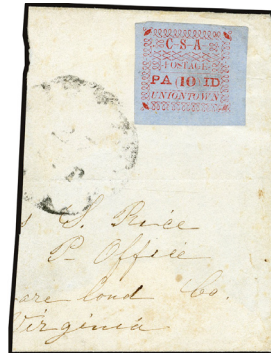 C·S·A·
POSTAGE
PAID 10
UNIONTOWN
S. Rice
P. Office
Co.
Virginia